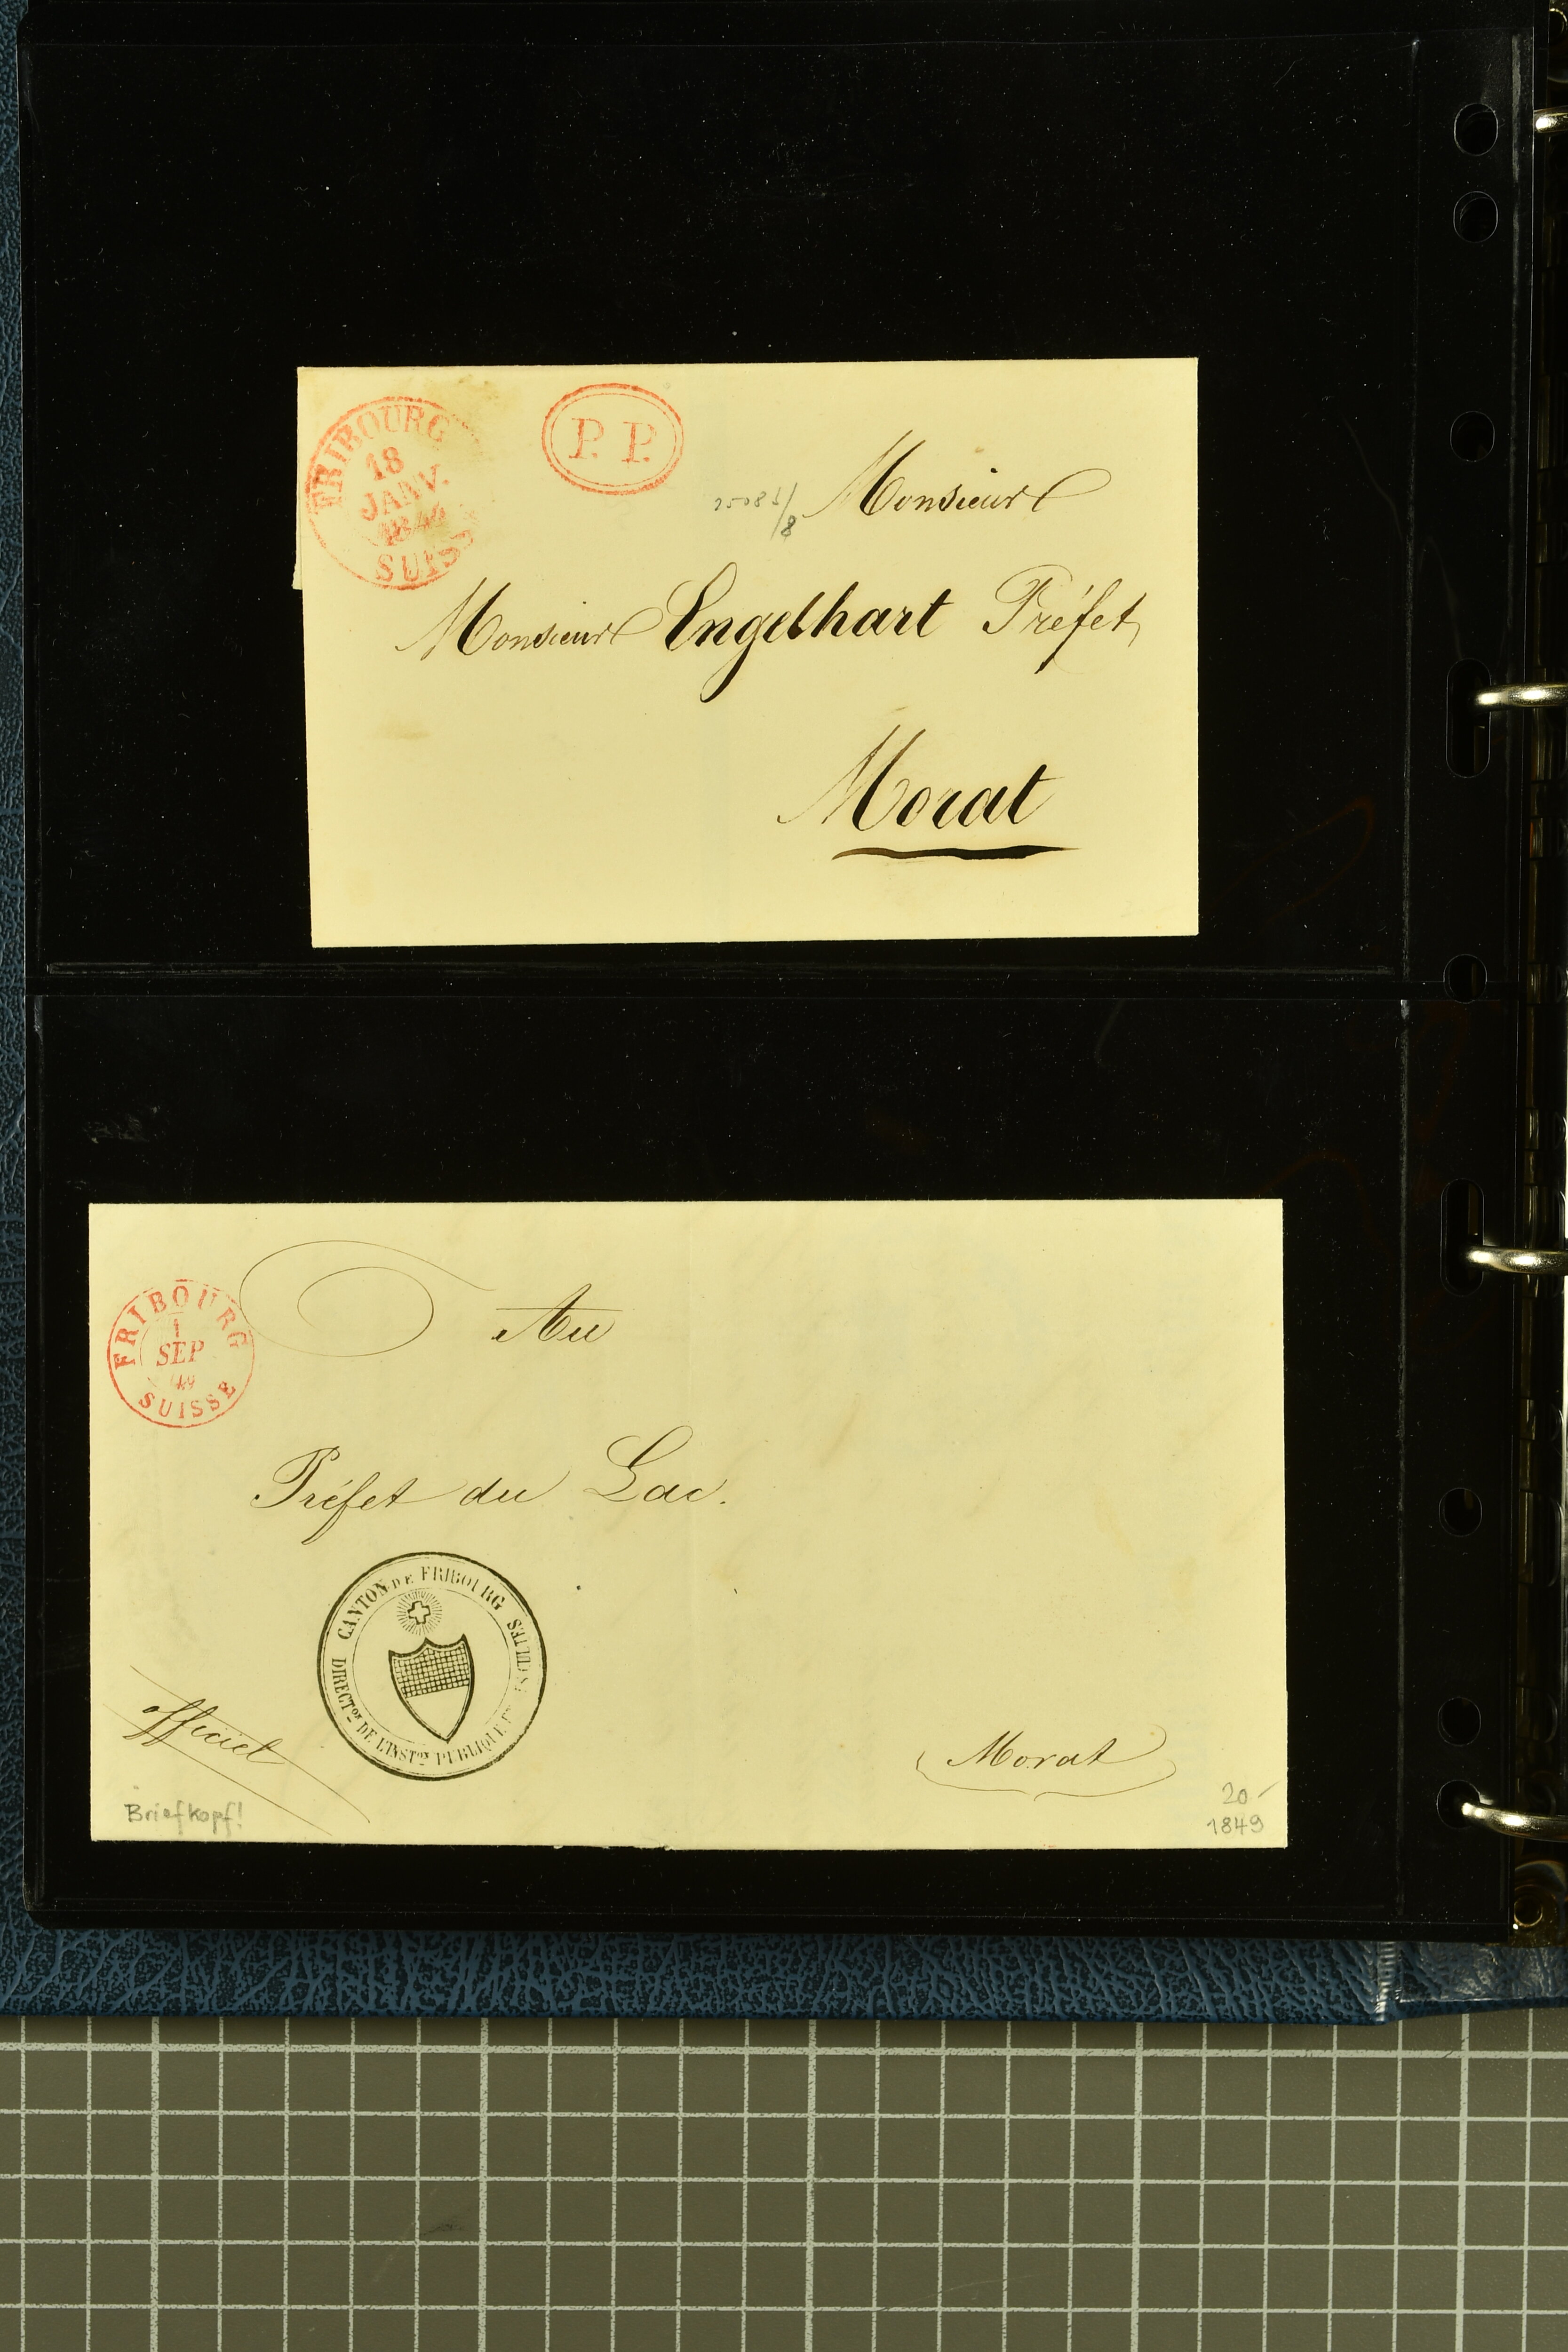 FRIBOURG
18
JANV.
SUIS
P. P.
Monsieur
Monsieur Engelhart Préfet
Morat
FRIBOURG
1
SEP
49
SUISSE
Au
Préfet du Lac.
CANTON DE FRIBOURG
DIRECTON DE L'INSTON PUBLIQUE CULTES
officiel
Morat
Briefkopf!
20-
1849